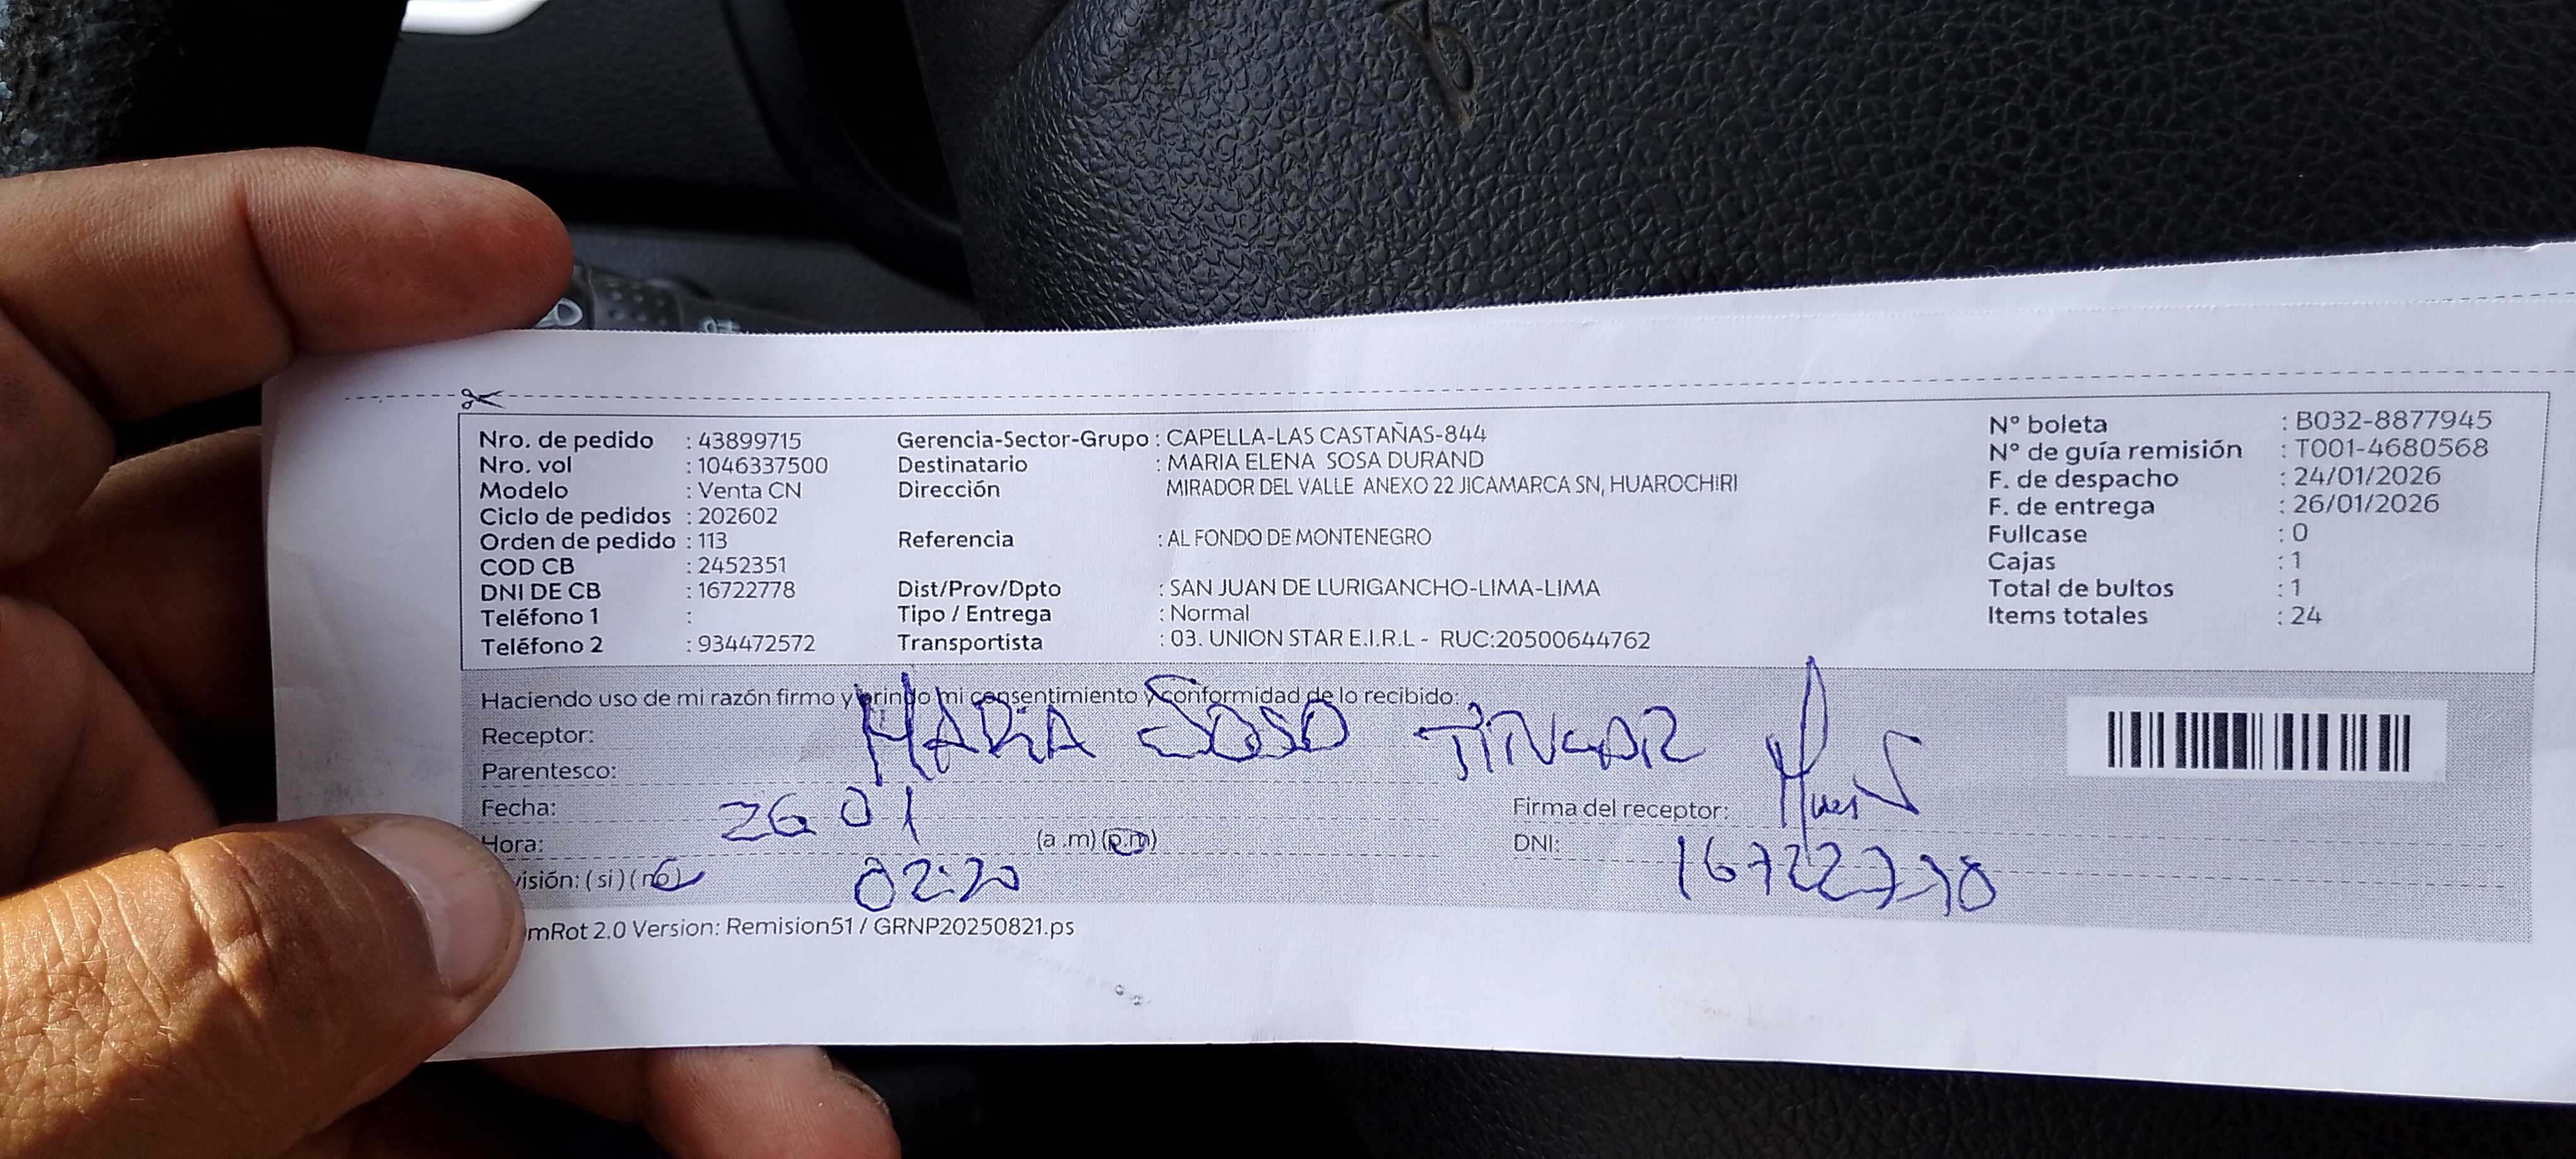 Nro. de pedido : 43899715
Nro. vol : 1046337500
Modelo : Venta CN
Ciclo de pedidos : 202602
Orden de pedido : 113
COD CB : 2452351
DNI DE CB : 16722778
Teléfono 1 :
Teléfono 2 : 934472572
Gerencia-Sector-Grupo : CAPELLA-LAS CASTAÑAS-844
Destinatario : MARIA ELENA SOSA DURAND
Dirección MIRADOR DEL VALLE ANEXO 22 JICAMARCA SN, HUAROCHIRI
Referencia : AL FONDO DE MONTENEGRO
Dist/Prov/Dpto : SAN JUAN DE LURIGANCHO-LIMA-LIMA
Tipo / Entrega : Normal
Transportista : 03. UNION STAR E.I.R.L - RUC:20500644762
N° boleta : B032-8877945
N° de guía remisión : T001-4680568
F. de despacho : 24/01/2026
F. de entrega : 26/01/2026
Fullcase : 0
Cajas : 1
Total de bultos : 1
Items totales : 24
Haciendo uso de mi razón firmo y brindo mi consentimiento y conformidad de lo recibido:
Receptor: MARIA SOSA
Parentesco:
Fecha: 26 01
Firma del receptor:
Hora: 02:20 (a.m) (p.m)
DNI:
visión: (si) (no)
mRot 2.0 Version: Remision51 / GRNP20250821.ps